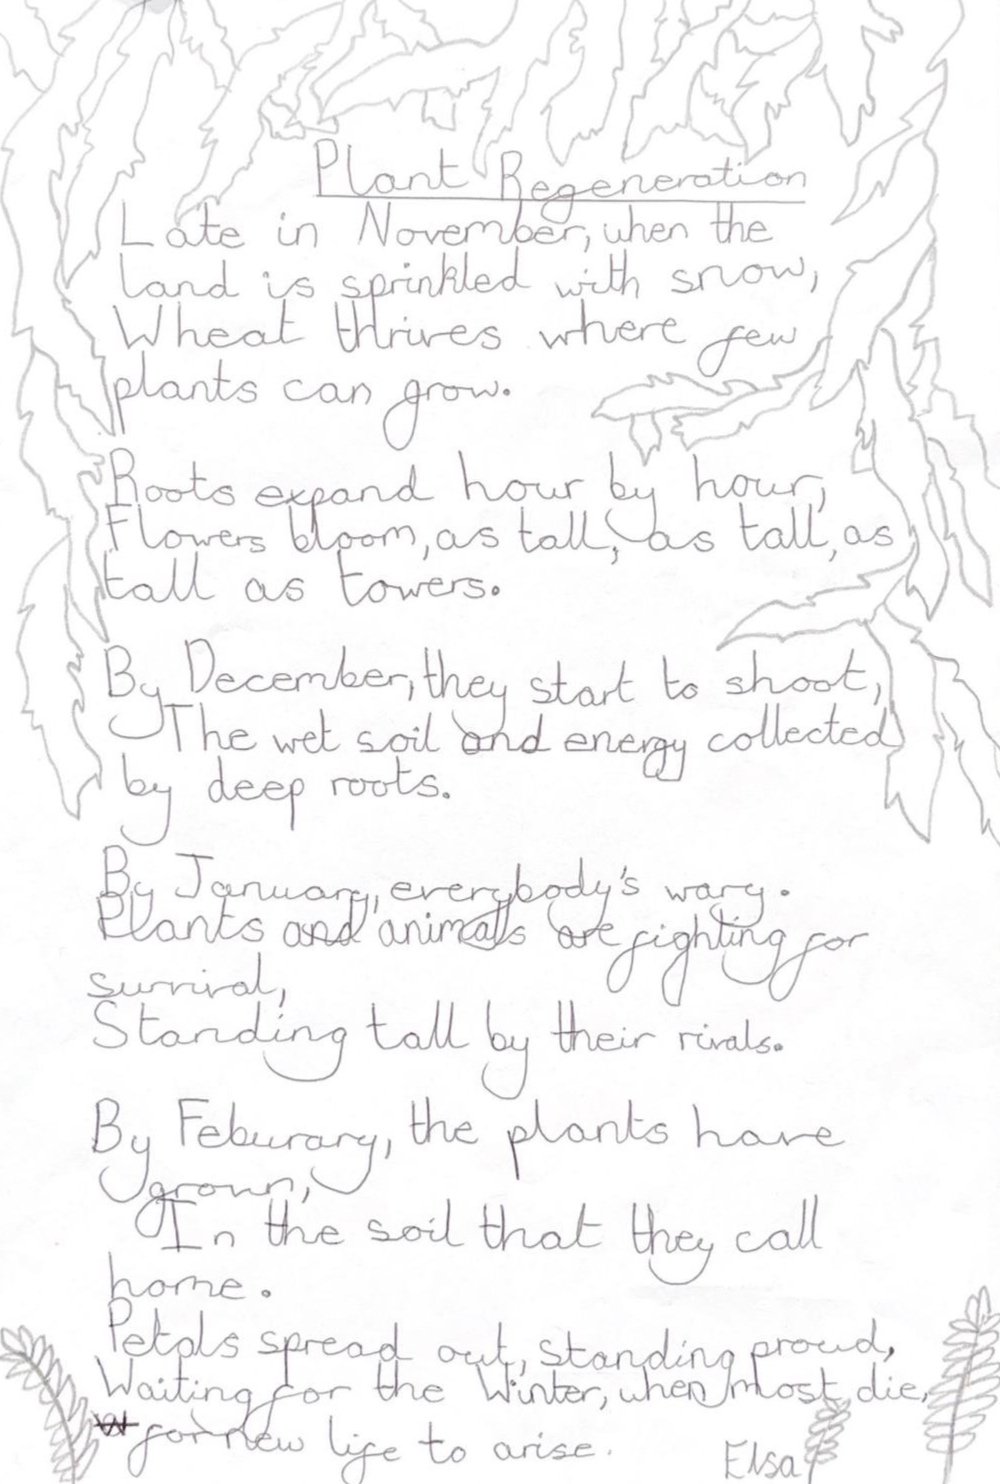 Plant Regeneration
Late in November, when the
land is sprinkled with snow,
Wheat thrives where few
plants can grow.
Roots expand hour by hour,
Flowers bloom, as tall, as tall, as
tall as towers.
By December, they start to shoot,
The wet soil and energy collected
by deep roots.
By January, everybody's wary.
Plants and animals are fighting for
survival,
Standing tall by their rivals.
By Feburary, the plants have
grown,
In the soil that they call
home.
Petals spread out, standing proud,
Waiting for the Winter, when most die,
for new life to arise.
Elsa